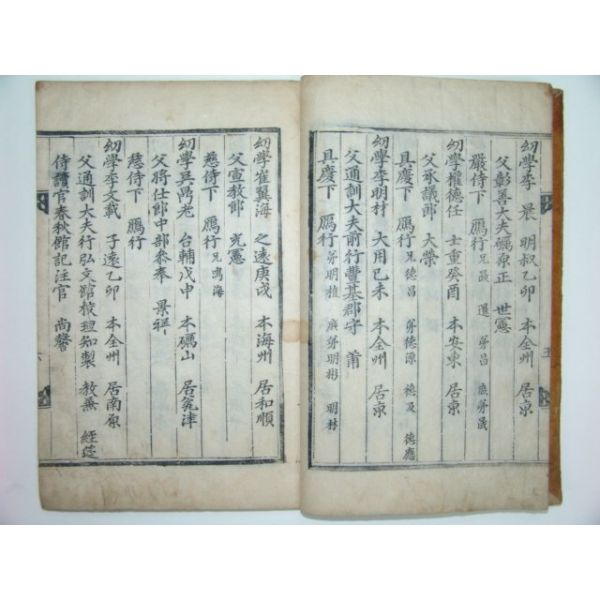 幼學李晨 明叔乙卯 本全州 居京
父彰善大夫礪原正 世憲
嚴侍下 鴈行 兄晸 暹 弟昌 庶弟晟
幼學權德任 士重癸酉 本安東 居京
父承議郎 大榮
具慶下 鴈行 兄德昌 弟德源 德及 德應
幼學李明材 大用己未 本全州 居京
父通訓大夫前行豊基郡守 莆
具慶下 鴈行 弟明植 庶弟明彬 明材
幼學崔翼海 之遠庚戌 本海州 居和順
父宣教郎 光憲
慈侍下 鴈行 兄鳴海
幼學吳禹老 台輔戊申 本礪山 居龍津
父將仕郎中部參奉 景祥
慈侍下 鴈行
幼學李文載 子遠乙卯 本全州 居南原
父通訓大夫行弘文館校理知製 教兼 經筵
侍讀官春秋館記注官 尚馨
五
六